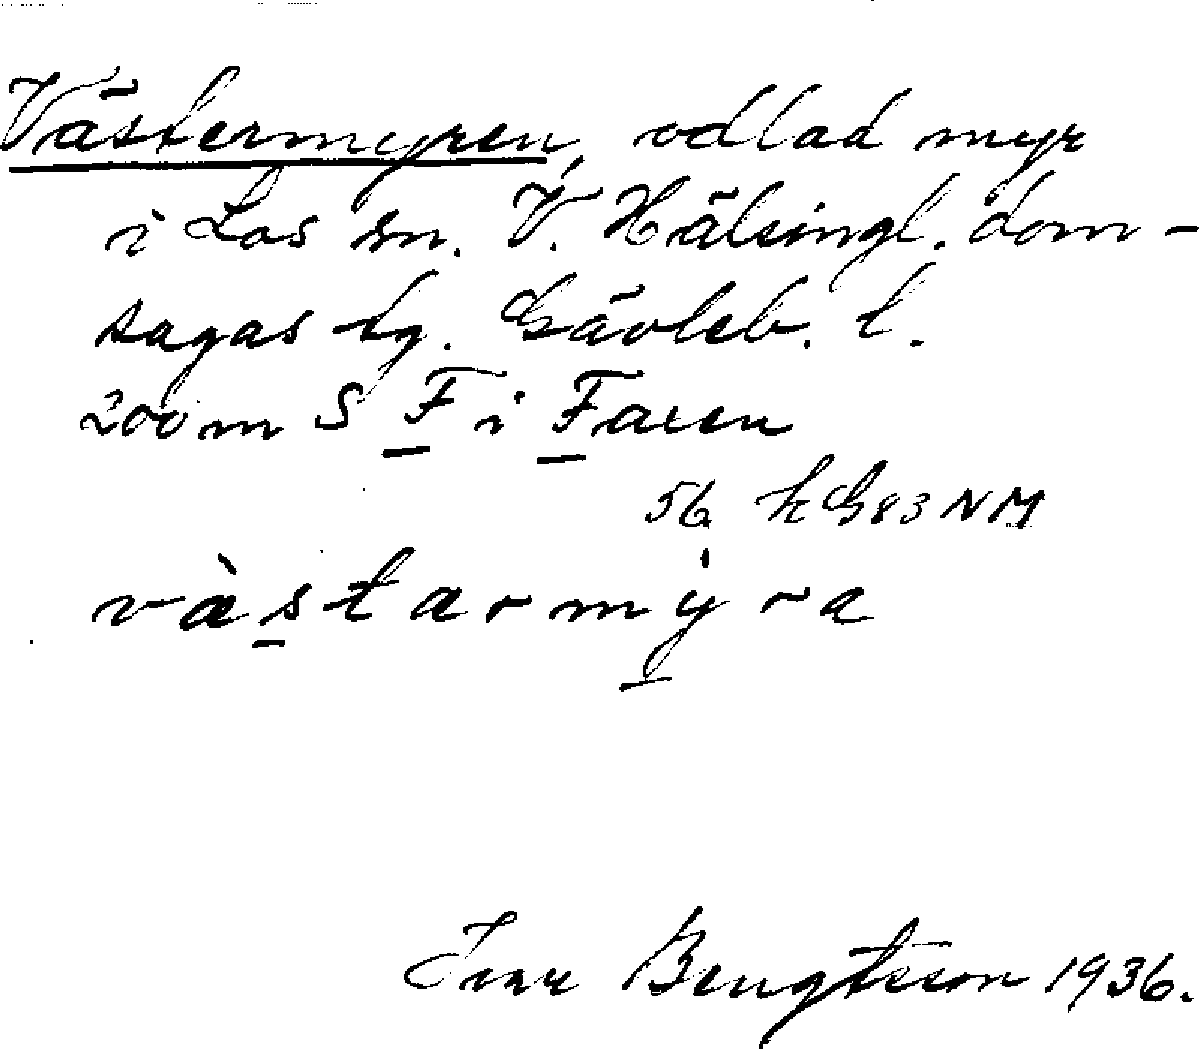 Västermyren, odlad myr
i Los sn. V. Hälsingl. dom-
sagas tg. Gävleb. l.
200 m S F i Faxen
56 kG83NM
vàstarmỳra
Ivar Bengtsson 1936.